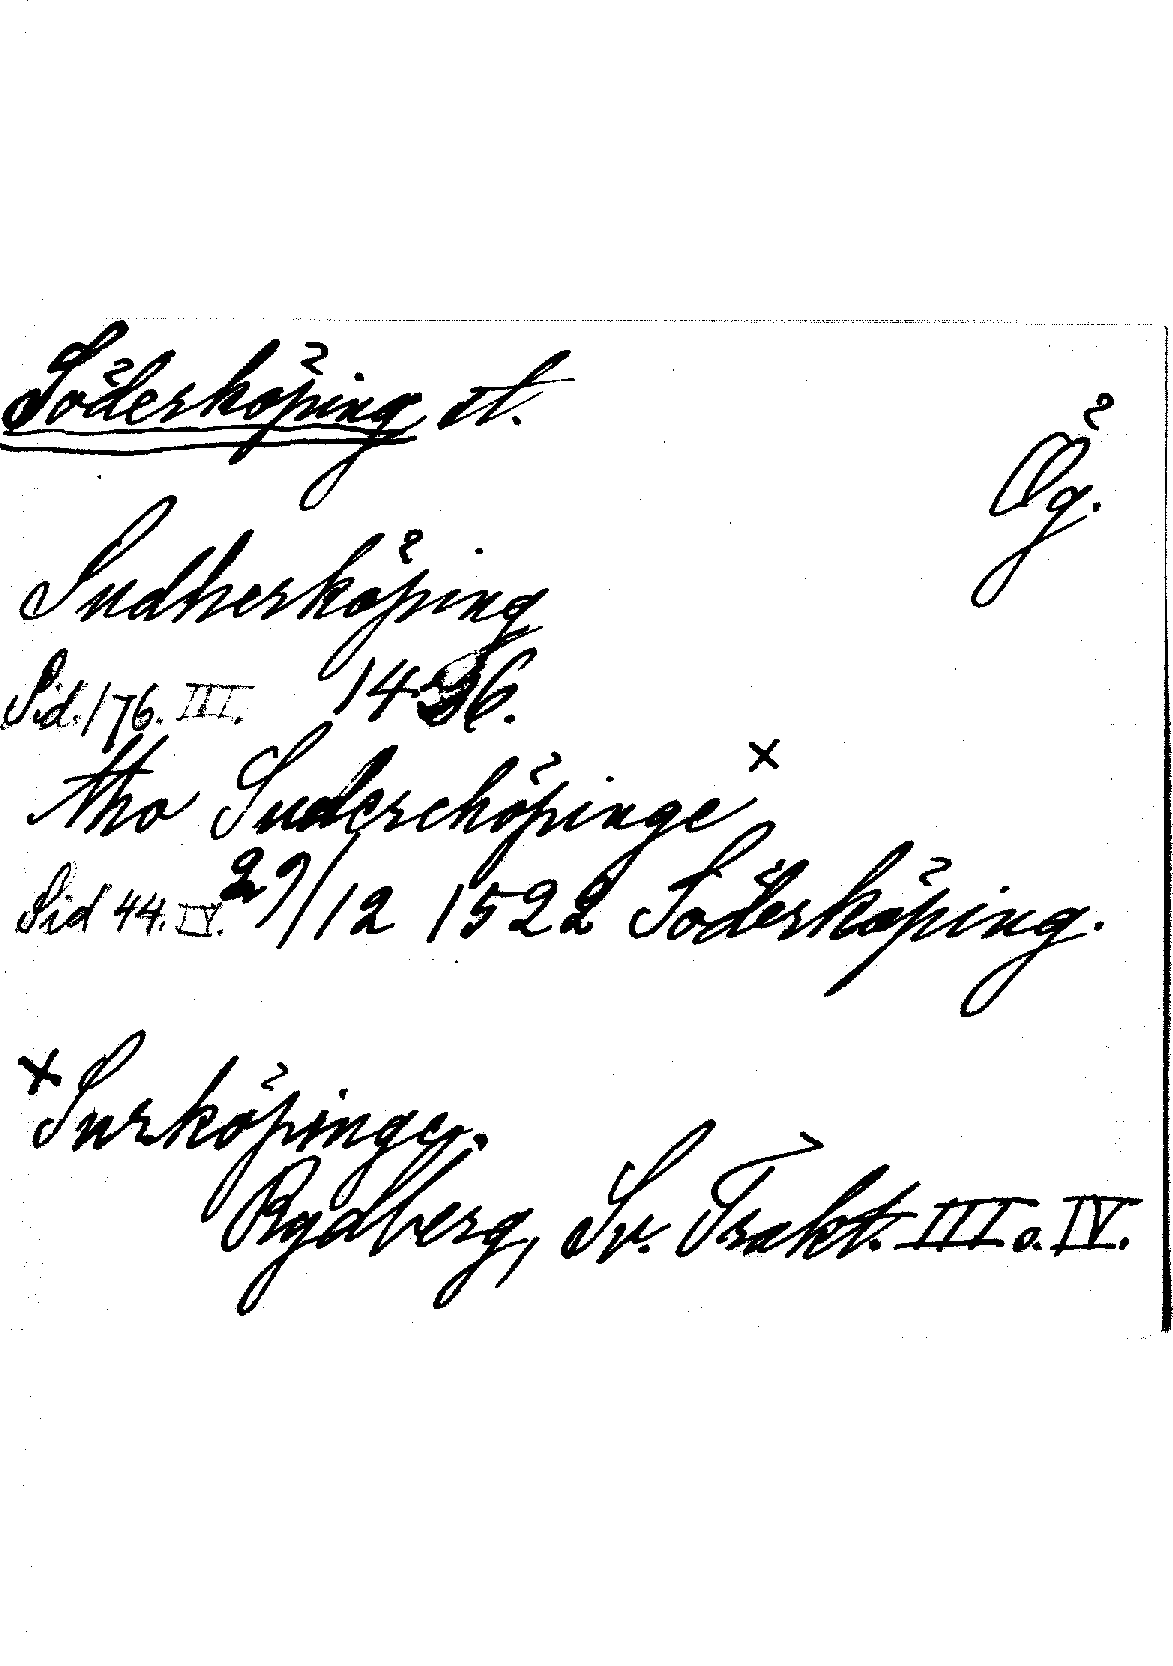 Söderköping st.
Ög.
Sudherköping
Sid. 176. III. 1436.
tho Suderchöpinge x
Sid 44. IV. 29/12 1522 Söderköping.
x Surköpinge.
Rydberg, Sv. Trakt. III o. IV.